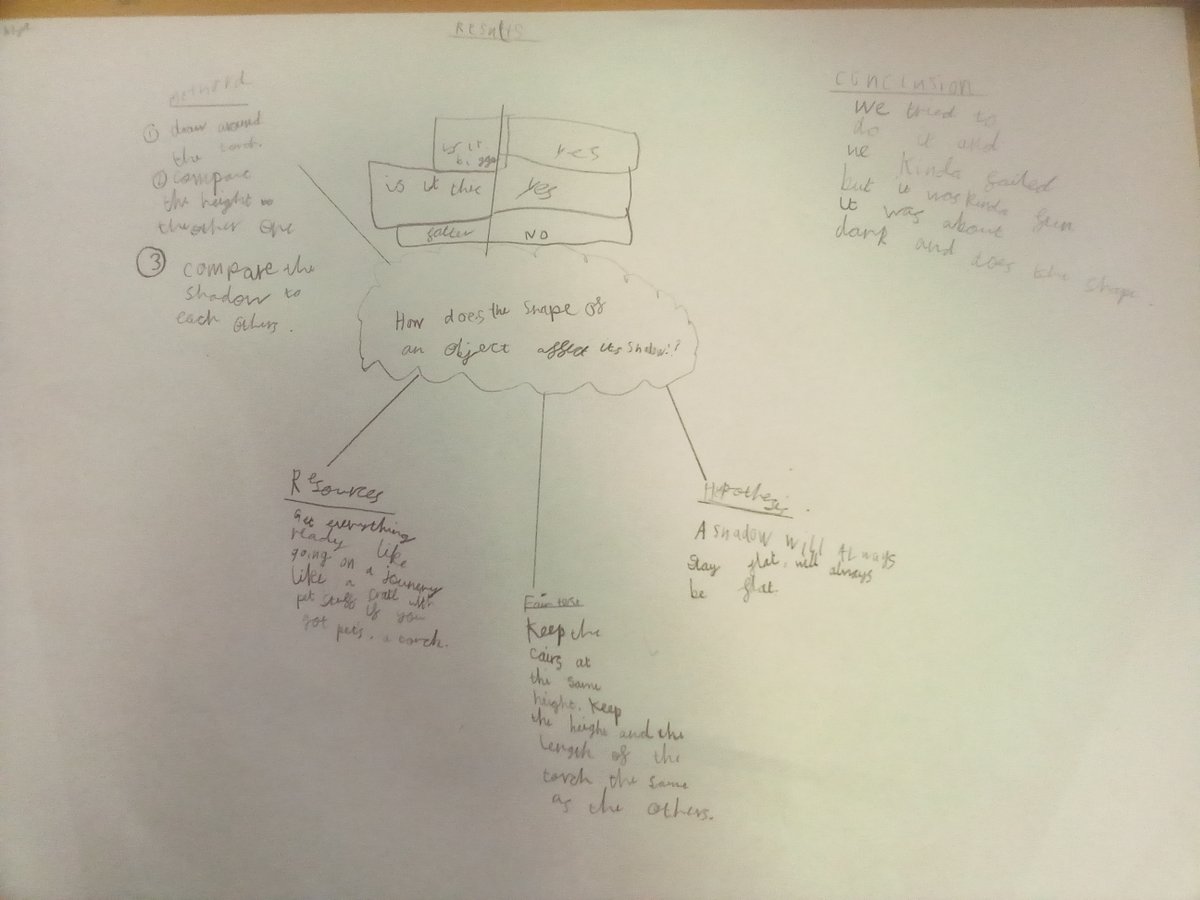 Results
Method
① draw around
the torch.
② compare
the height to
the other one
③ compare the
shadow to
each others.
is it
bigga
yes
is it the
yes
NO
CONCLUSION
we tried to
do it and
we kinda failed
but it was kinda fun
it was about
dark and does the shape
How does the shape of
an object affect its shadow?
Resources
Get everything
ready like
going on a
like a
pet stuff with
if you
got pets, a torch.
Fair test
Keep the
at
the same
height. Keep
the height and the
length of the
torch the same
as the others.
Hypothesis.
A shadow will always
stay flat, will always
be flat.